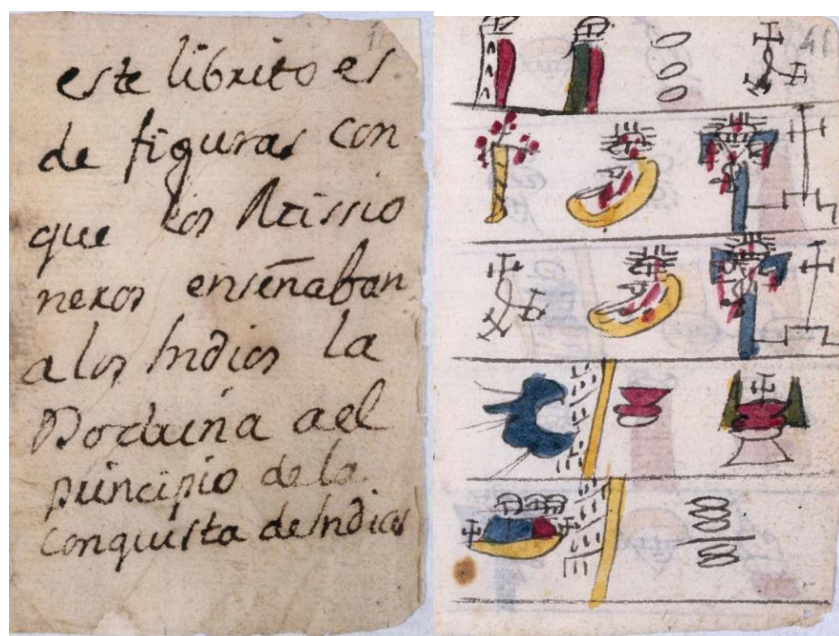 este librito es
de figuras con
que los Missio
neros enseñaban
a los Indios la
Doctrina a el
principio de la
conquista de Indias